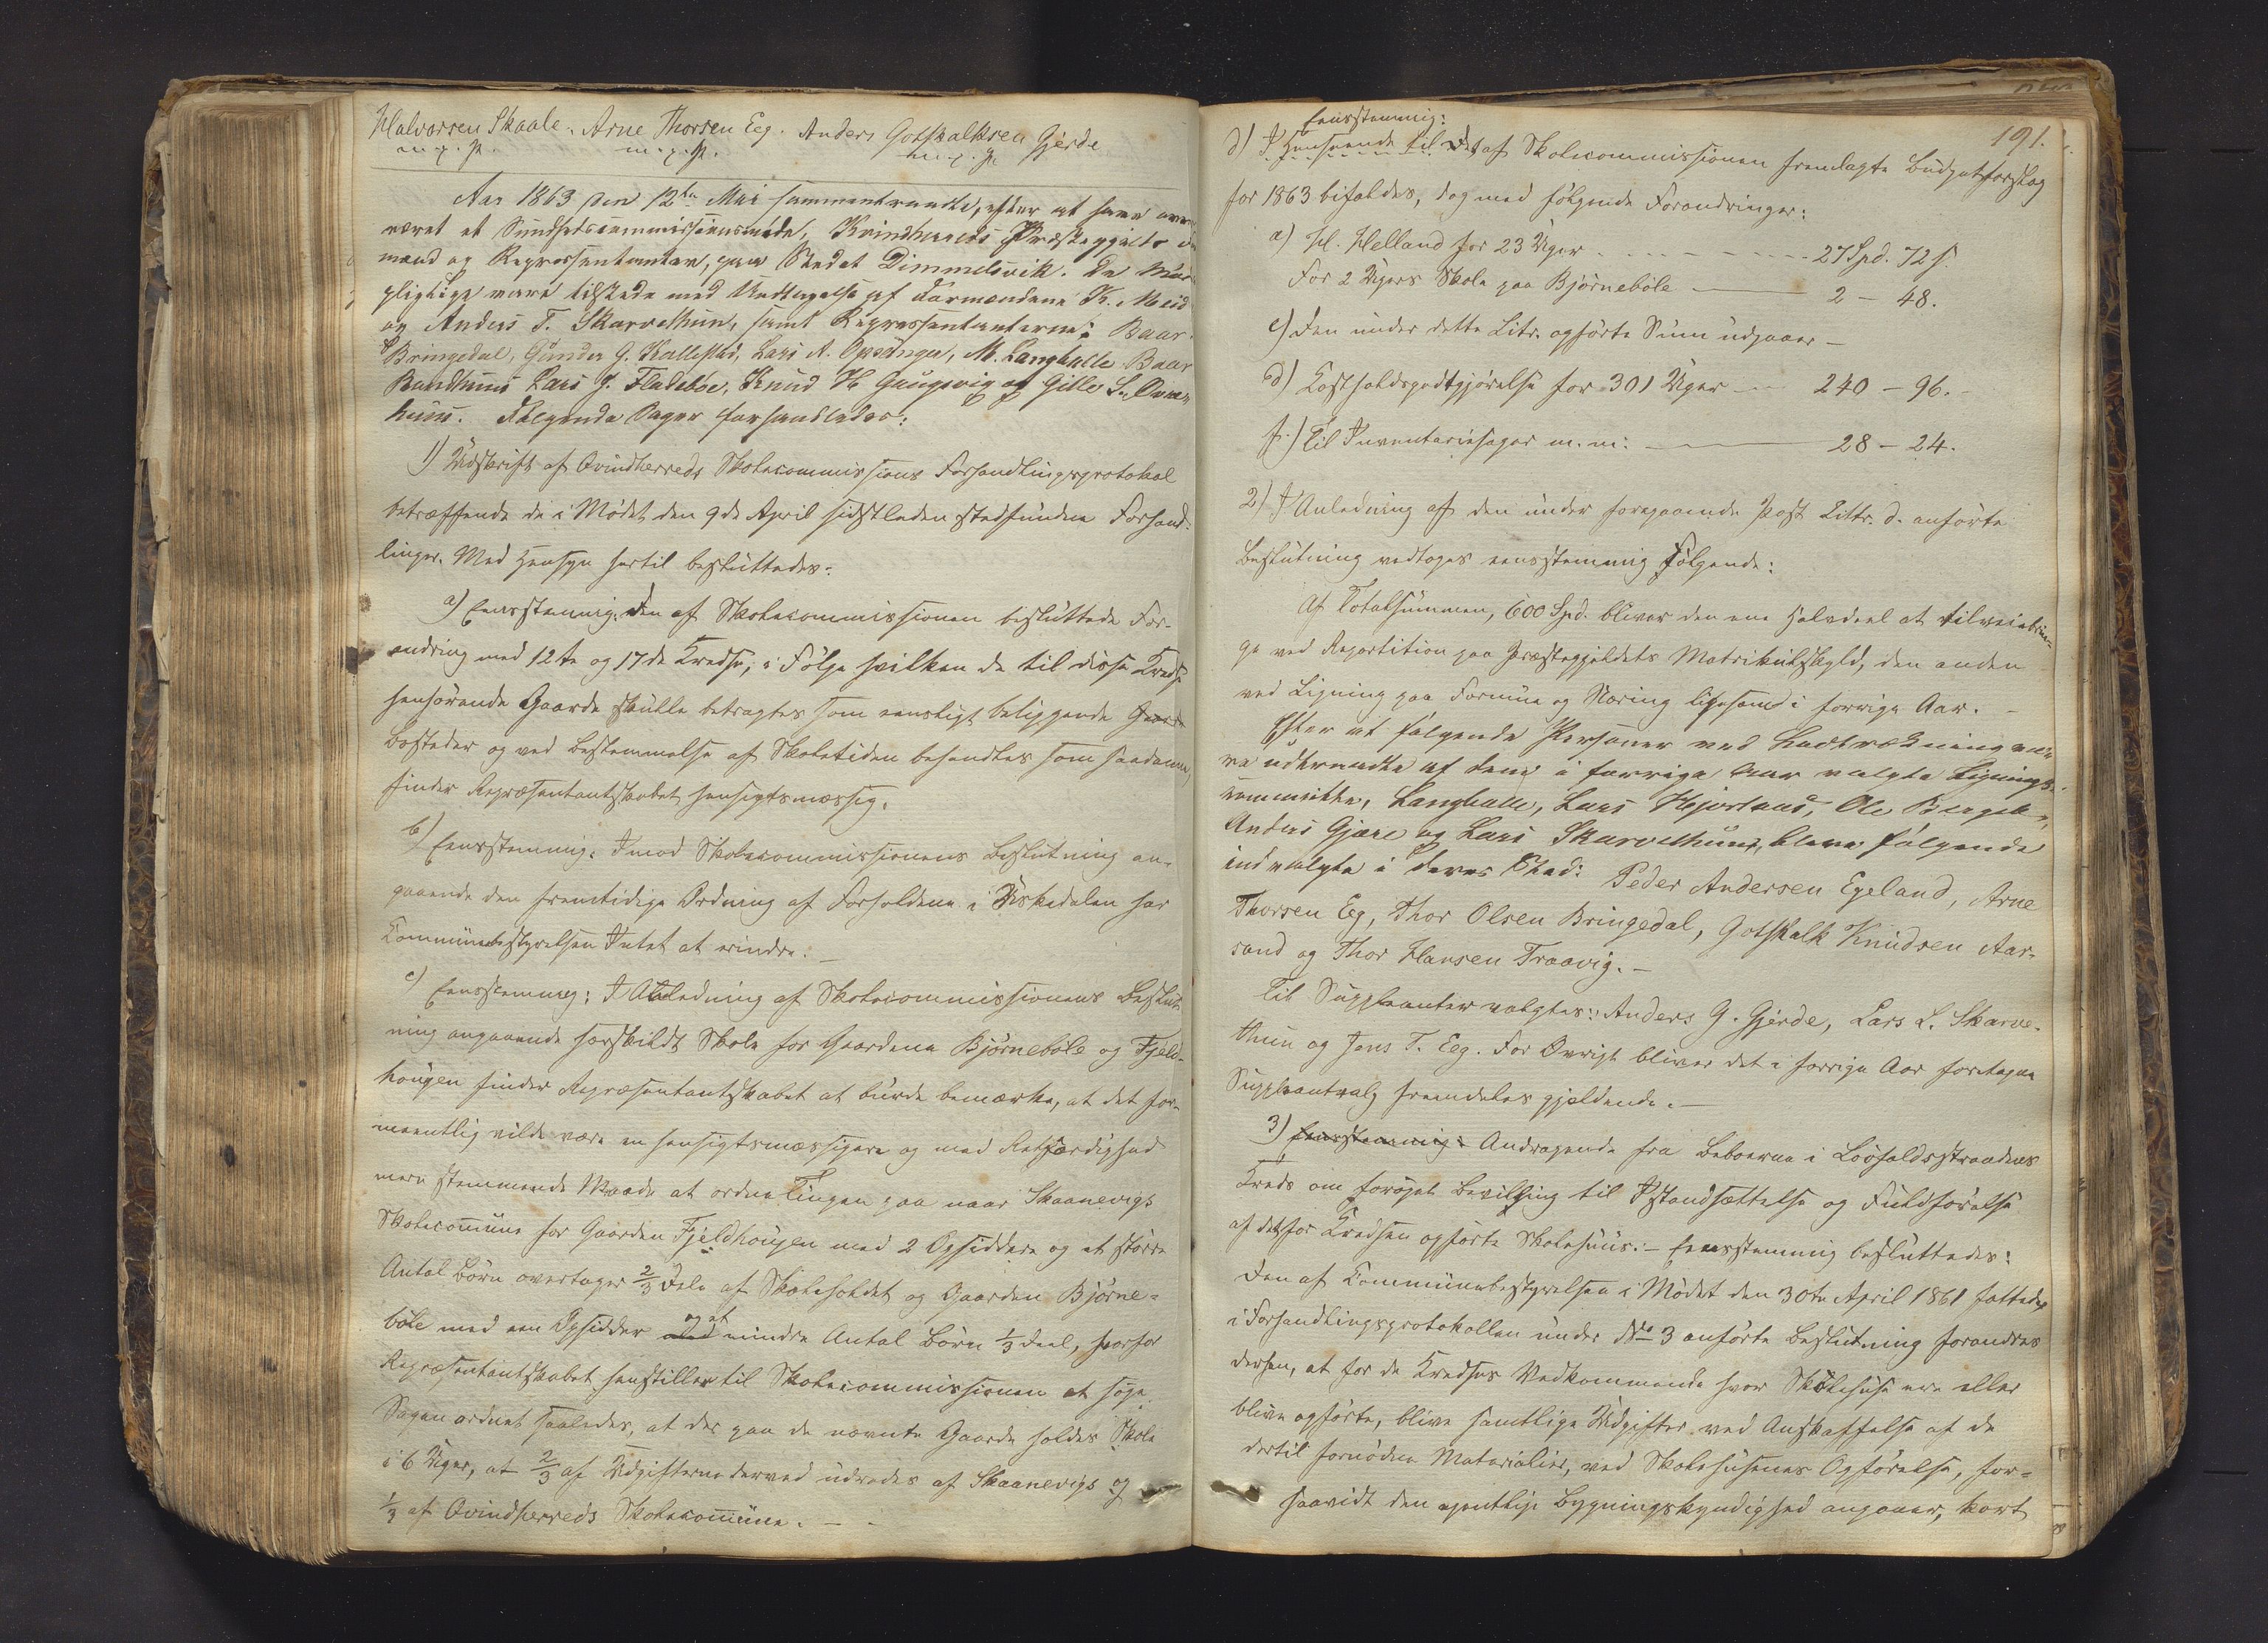 Halvorsen Skaale. Arne Thorsen Eeg. Anders Gotskalksen Gjerde
m. p. P. m. p. P. m. p. P.
Aar 1863 den 12te Mai sammentraadte, efter at have over
været et Sundhedscommissionsmøde, Kvindherreds Præstegjelds
mænd og Repræsentanter, paa Stedet Dimmelsvik. De
pligtige vare tilstede med Undtagelse af Formændene K. Meid
og Anders T. Skarvethun, samt Repræsentanterne: Baar
Bringedal, Gunder G. Kallestad, Lars A. Opsanger, M. Langballe Baar
Lars J. Fladebøe, Knud H. Gaugsvig og Gitle S. Ovre-
huus. Følgende Sager forhandledes:
1) Udskrift af Qvindherreds Skolecommissions Forhandlingsprotokol
betræffende de i Mødet den 9de April sidstleden stedfundne Forhand-
linger. Med Hensyn hertil besluttedes:
a) Eensstemmig: Den af Skolecommissionen besluttede For-
andring med 12te og 17de Kredse, i Følge hvilken de til disse Kredse
henhørende Gaarde skulle betragtes som eensligt beliggende Gaarde
bosteder og ved Bestemmelse af Skoletiden behandles som saadanne,
finder Repræsentantskabet hensigtsmæssig.
b) Eensstemmig: Imod Skolecommissionens Beslutning an-
gaaende den fremtidige Ordning af Forholdene i Uskedalen har
Communebestyrelsen Intet at erindre. —
c) Eensstemmig: I Anledning af Skolecommissionens Beslut-
ning angaaende særskildt Skole for Gaardene Bjørnebøle og Fjeld-
hougen finder Repræsentantskabet at burde bemærke, at det for-
meentlig vilde være en hensigtsmæssigere og med Retfærdighed
mere stemmende Maade at ordne Tingen paa naar Skaanevigs
Skolecommune for Gaarden Fjeldhougen med 2 Opsiddere og et større
Antal Børn overtager 2/3 Dele af Skoleholdet og Gaarden Bjørne-
bøle med een Opsidder og et mindre Antal Børn 1/3 Deel, hvorfor
Repræsentantskabet henstiller til Skolecommissionen at søge
Sagen ordnet saaledes, at der paa de nævnte Gaarde holdes Skole
i 6 Uger, at 2/3 af Udgifterne derved udredes af Skaanevigs og
1/3 af Qvindherreds Skolecommune. — -
191.
Eensstemmig:
d) I Henseende til Det af Skolecommissionen fremlagte Budgetforslag
for 1863 bifaldes, dog med følgende Forandringer:
a) H. Helland for 23 Uger - - - - - 27 Spd. 72 s.
For 2 Ugers Skole paa Bjørnebøle — 2 — 48.
c) Den under dette Litr. opførte Sum udgaaer —
d) Kostholdsgodtgjørelse for 301 Uger — 240 — 96. -
f.) Til Inventariesager m. m: — 28 — 24.
2) I Anledning af den under foregaaende Post Littr. d. anførte
Beslutning vedtoges eensstemmig Følgende:
Af Totalsummen, 600 Spd. bliver den ene Halvdeel at tilveiebrin-
ge ved Repartition paa Præstegjeldets Matrikulskyld, den anden
ved Ligning paa Formue og Næring ligesom i forrige Aar. —
Efter at følgende Personer ved Lodtrækning va-
re udtraadte af den i forrige Aar valgte Lignings-
committe, Langballe, Lars Hjortaas, Ole
Anders Gjære og Lars Skarvethun, bleve følgende
indvalgte i deres Sted: Peder Andersen Egeland, Arne
Thorsen Eeg, Thor Olsen Bringedal, Gotskalk Knudsen Aar-
sand og Thor Hansen Traavig. —
Til Suppleanter valgtes: Anders G. Gjerde, Lars L. Skarve-
thun og Jens T. Eeg. For Øvrigt bliver det i forrige Aar foretagne
Suppleantvalg fremdeles gjældende. —
3) Eensstemmig: Andragende fra Beboerne i Løvfaldsstrandens
Kreds om forøget Bevilling til Istandsættelse og Fuldførelse
af det for Kredsen opførte Skolehuus. — Eensstemmig besluttedes:
Den af Communebestyrelsen i Mødet den 30te April 1861 fattede,
i Forhandlingsprotokollen under No 3 anførte Beslutning forandres
derhen, at for de Kredses Vedkommende hvor Skolehuse ere eller
blive opførte, blive samtlige Udgifter ved Anskaffelse af de
dertil fornødne Materialier, ved Skolehusenes Opførelse, for-
saavidt den egentlige Bygningskyndighed angaaer, kort